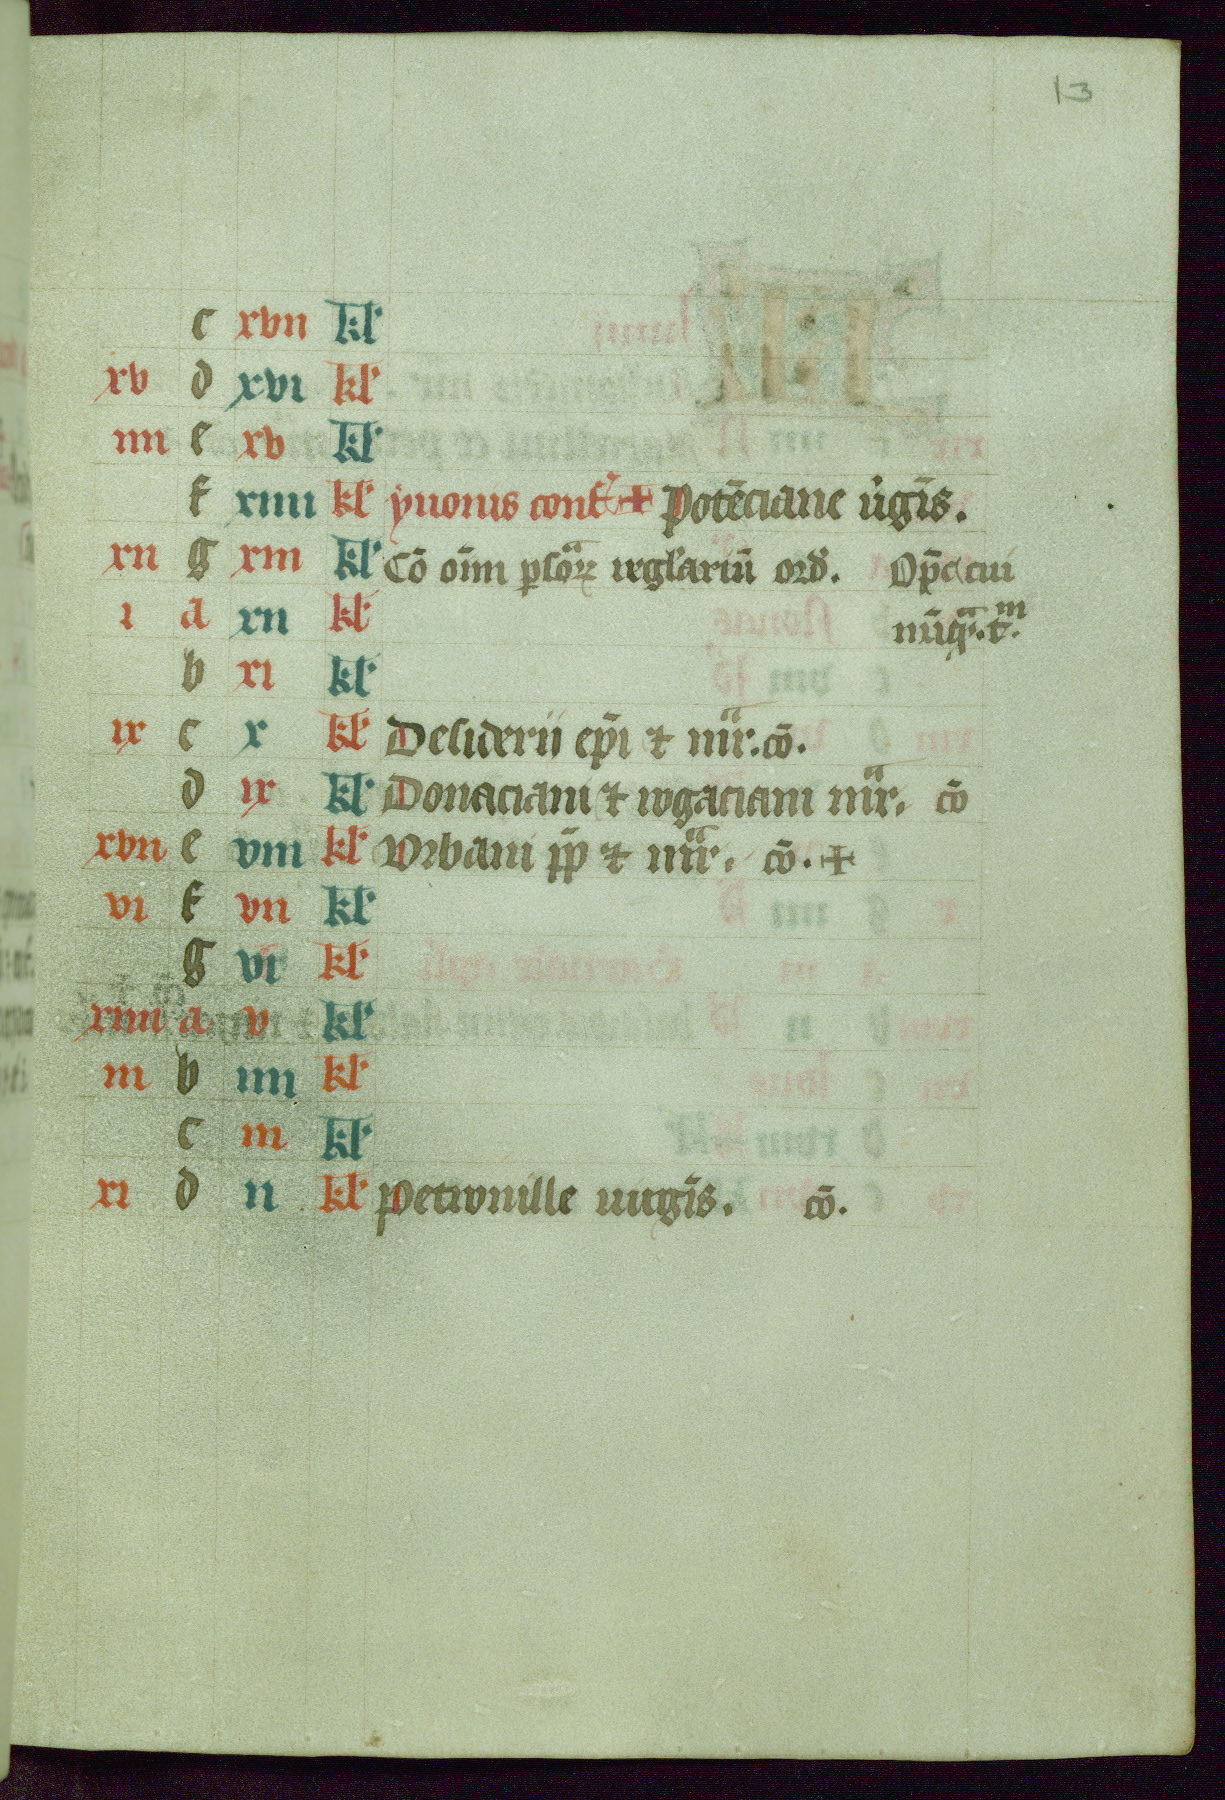 13
c xvii kl'
xv d xvi kl'
iiii e xv kl'
f xiiii kl' yuonis conf' + Potēciane u̇gīs.
xii g xiii kl' Cō oīm pſoꝝ irglariū ord. Op̄a cui
i a xii kl'
b xi kl'
ix c x kl' Desiderii ep̄i ⁊ mr̄. cō.
d ix kl' Donaciani ⁊ rogaciani mr̄. cō
xvii e viii kl' Vrbani pp̄ ⁊ mr̄. cō. +
vi f vii kl'
g vi kl'
xiiii a v kl'
iii b iiii kl'
c iii kl'
xi d ii kl' Petronille uirgīs. cō.